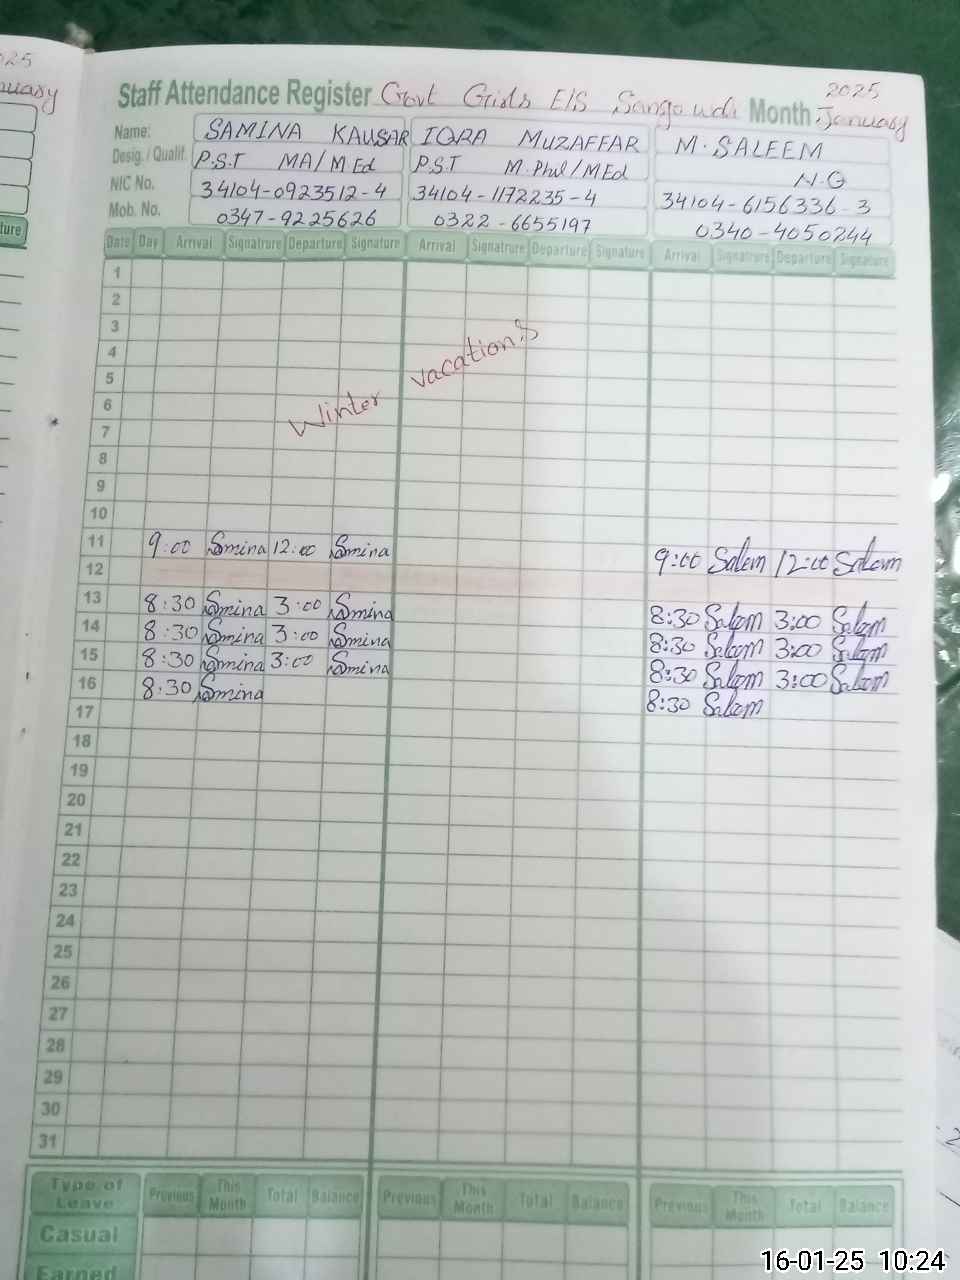 2025
Staff Attendance Register Govt Girls E/S Sango wali Month January
Name: SAMINA KAUSAR IQRA MUZAFFAR M. SALEEM
Desig. / Qualif. P.S.T MA/M Ed P.S.T M.Phil/MEd N.Q
NIC No. 34104-0923512-4 34104-1172235-4 34104-6156336-3
Mob. No. 0347-9225626 0322-6655197 0340-4050244
Date Day Arrival Signatrure Departure Signature Arrival Signatrure Departure Signature Arrival Signatrure Departure Signature
1
2
3
4
5
6
Winter vacation.s
7
8
9
10
11 9:00 Smina 12:00 Smina 9:00 Salem 12:00 Saleem
12
13 8:30 Smina 3:00 Smina 8:30 Saleem 3:00 Saleem
14 8:30 Smina 3:00 Smina 8:30 Saleem 3:00 Saleem
15 8:30 Smina 3:00 Smina 8:30 Saleem 3:00 Saleem
16 8:30 Smina 8:30 Saleem
17
18
19
20
21
22
23
24
25
26
27
28
29
30
31
Type of Leave Previous This Month Total Balance Previous This Month Total Balance Previous This Month Total Balance
Casual
Earned
16-01-25 10:24